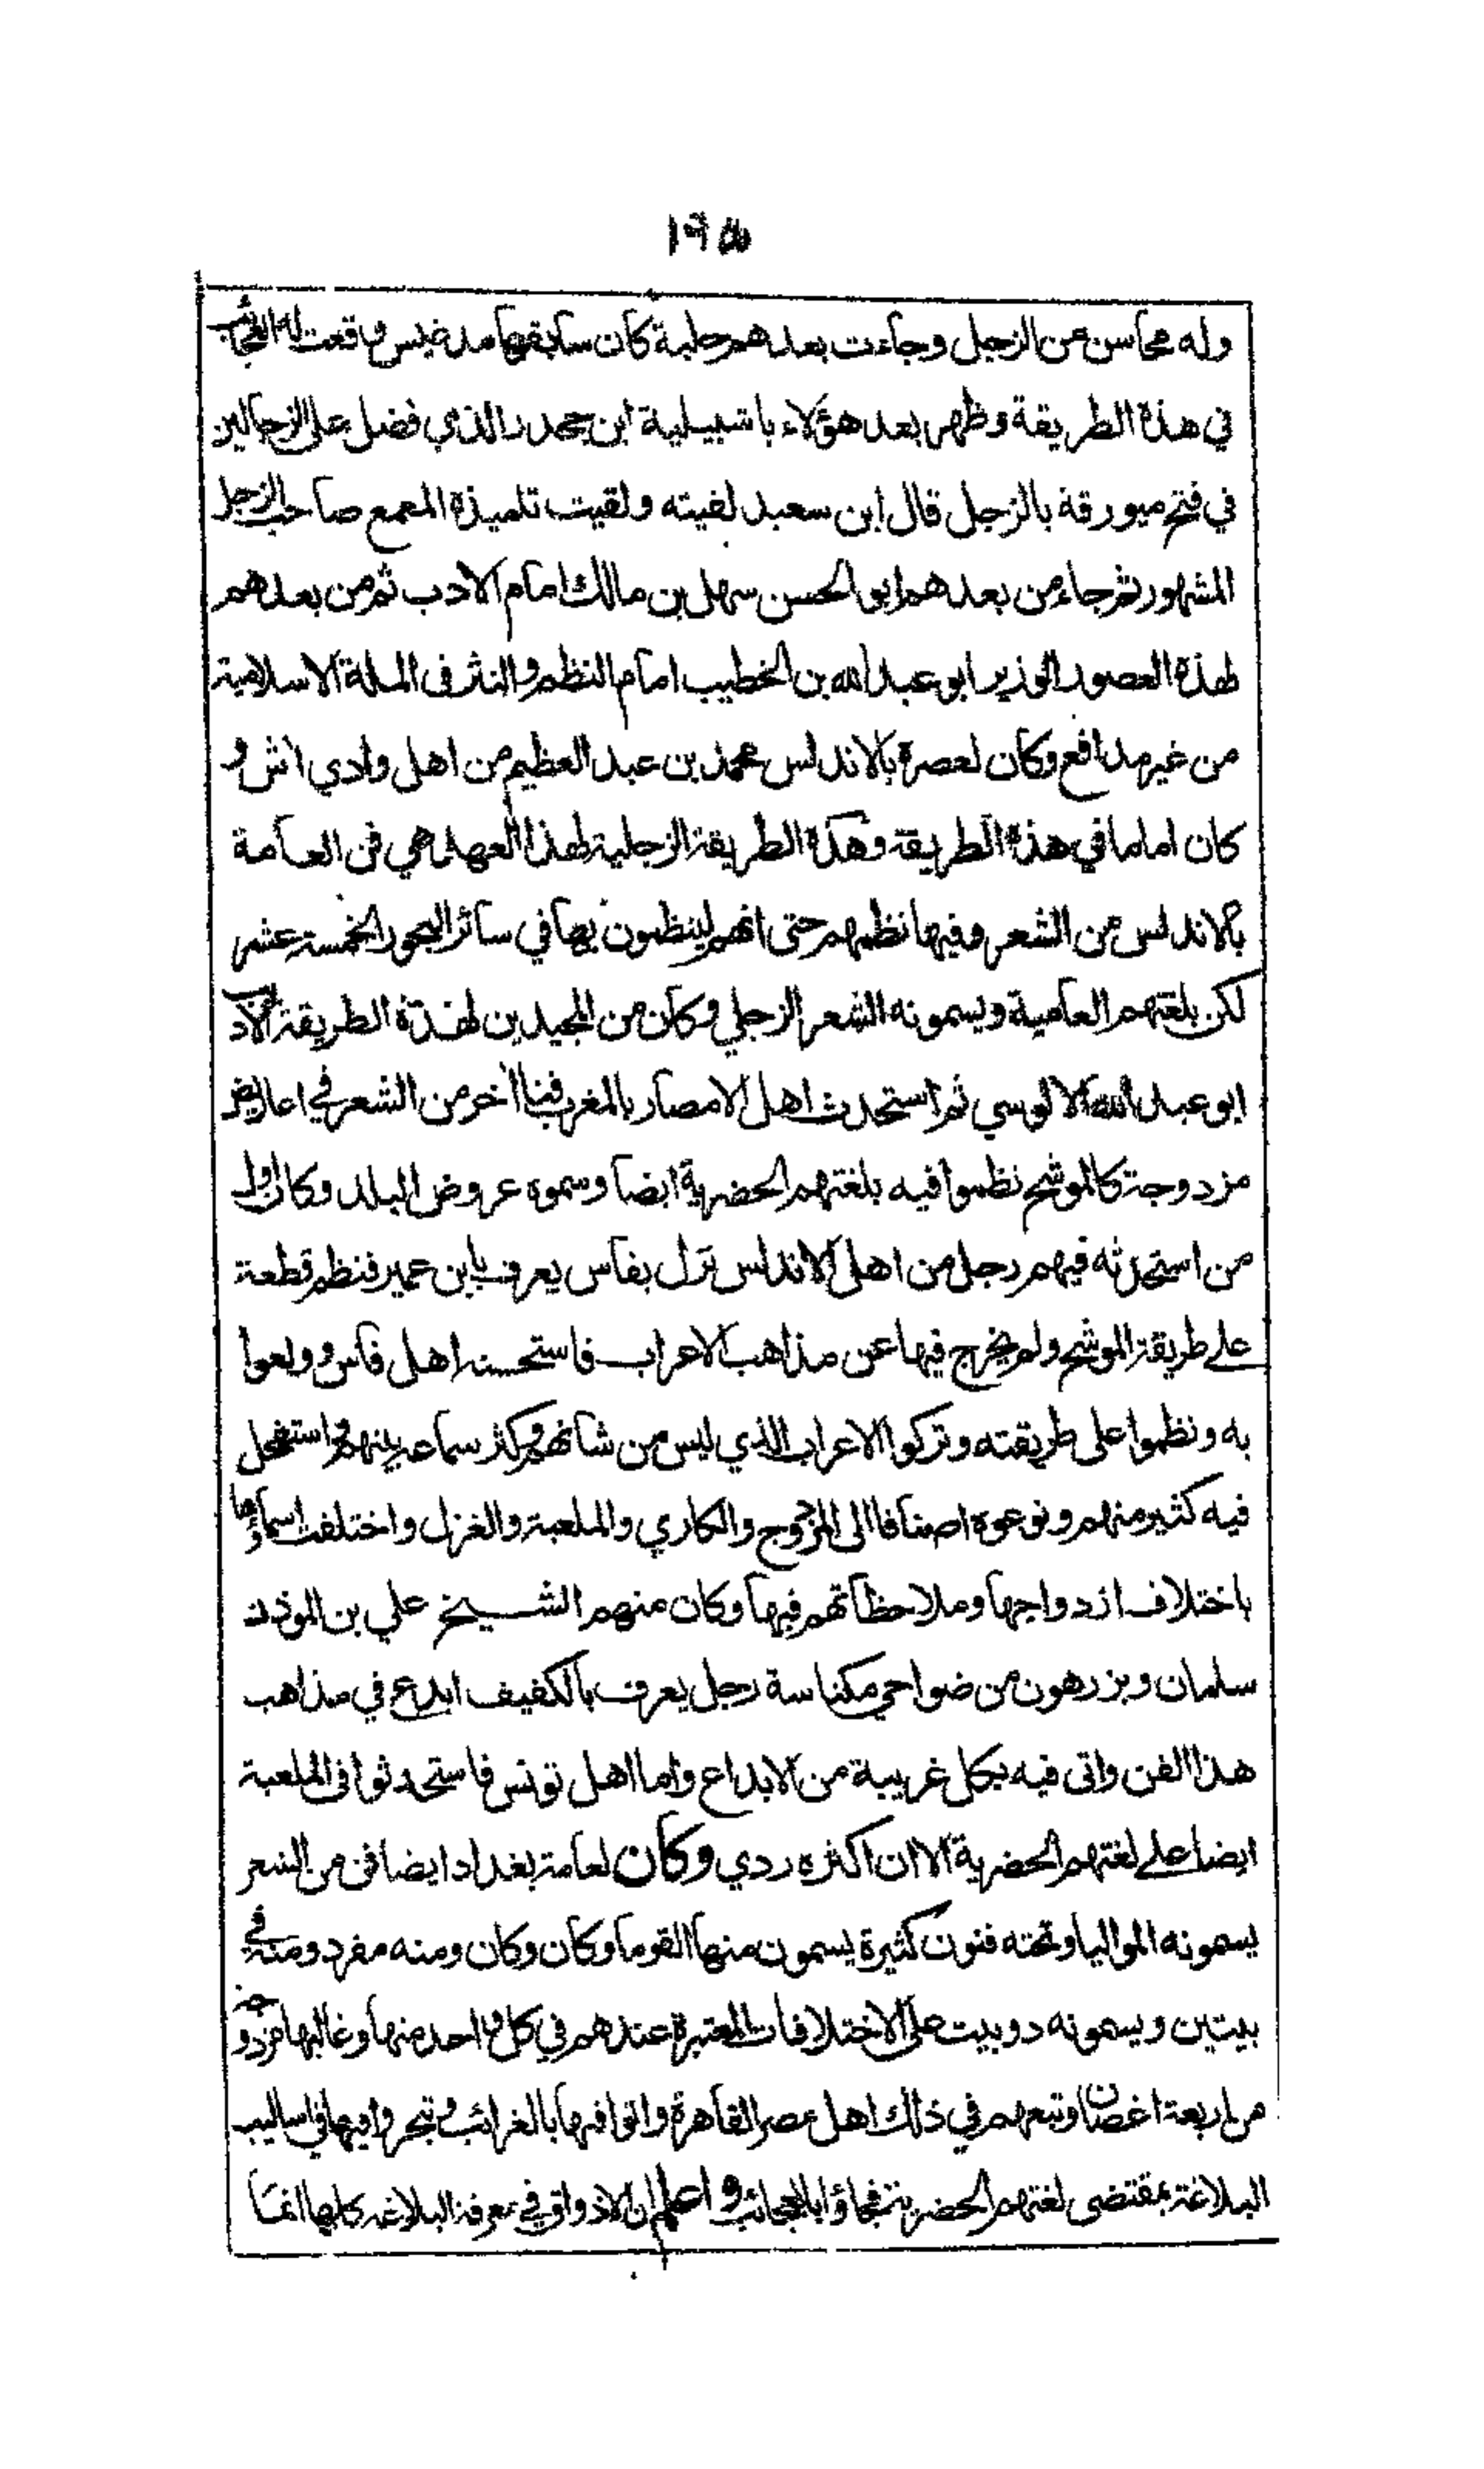 ١٩٥
وله محاسن من الزجل وجاءت بعدهم حلبة كان سابقها مدغيس وقعت له العجائب
في هذه الطريقة وظهر بعد هؤلاء باشبيلية ابن جحدر الذي فضل على الزجالين
في فتح ميورقة بالزجل قال ابن سعيد لقيته ولقيت تلميذه المعمع صاحب الزجل
المشهور ثم جاء من بعدهم ابو الحسن سهل بن مالك امام الادب ثم من بعدهم
لهذه العصور الوزير ابو عبد الله بن الخطيب امام النظم والنثر في الملة الاسلامية
من غير مدافع وكان لعصره بالاندلس محمد بن عبد العظيم من اهل وادي اش و
كان اماما في هذه الطريقة وهذه الطريقة الزجلية لهذا العهد هي فن العامة
بالاندلس من الشعر وفيها نظمهم حتى انهم لينظمون بها في سائر البحور الخمسة عشر
لكن بلغتهم العامية ويسمونه الشعر الزجلي وكان من المجيدين لهذه الطريقة الاديب
ابو عبد الله الالوسي ثم استحدث اهل الامصار بالمغرب فنا اخر من الشعر في اعاريض
مزدوجة كالموشح نظموا فيه بلغتهم الحضرية ايضا وسموه عروض البلد وكان اول
من استحدثه فيهم رجل من اهل الاندلس نزل بفاس يعرف بابن عمير فنظم قطعة
على طريقة الموشح ولم يخرج فيها عن مذاهب الاعراب فاستحسنه اهل فاس وولعوا
به ونظموا على طريقته وتركوا الاعراب الذي ليس من شانهم وكثر سماعه بينهم واستفحل
فيه كثير منهم ونوعوه اصنافا الى المزدوج والكاري والملعبة والغزل واختلفت اسماؤها
باختلاف ازدواجها وملاحظاتهم فيها وكان منهم الشيخ علي بن الموذن
سلمان وبزرهون من ضواحي مكناسة رجل يعرف بالكفيف ابدع في مذاهب
هذا الفن واتى فيه بكل غريبة من الابداع واما اهل تونس فاستحدثوا في الملعبة
ايضا على لغتهم الحضرية الا ان اكثره ردي وكان لعامة بغداد ايضا فن من الشعر
يسمونه المواليا وتحته فنون كثيرة يسمون منها القوما وكان وكان ومنه مفرد ومنه في
بيتين ويسمونه دوبيت على الاختلافات المعتبرة عندهم في كل واحد منها وغالبها مزدوجة
من اربعة اغصان وتبعهم في ذلك اهل مصر القاهرة واتوا فيها بالغرائب وتبحروا فيها في اساليب
البلاغة بمقتضى لغتهم الحضرية فجاؤا بالعجائب واعلم ان الاذواق في معرفة البلاغه كلها انما